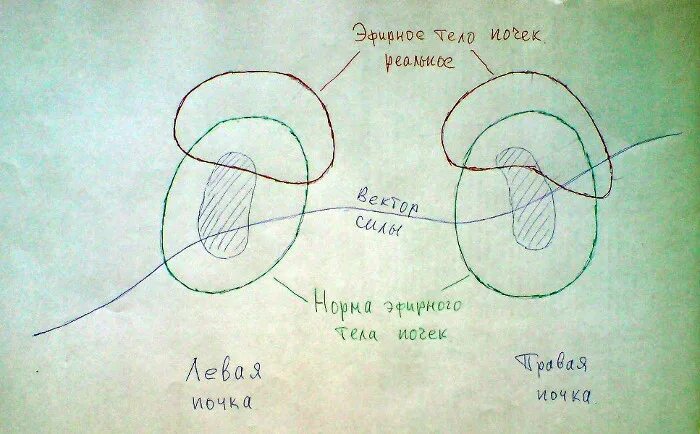 Эфирное тело почек
реальное
Вектор
силы
Норма эфирного
тела почек
Левая
почка
Правая
почка